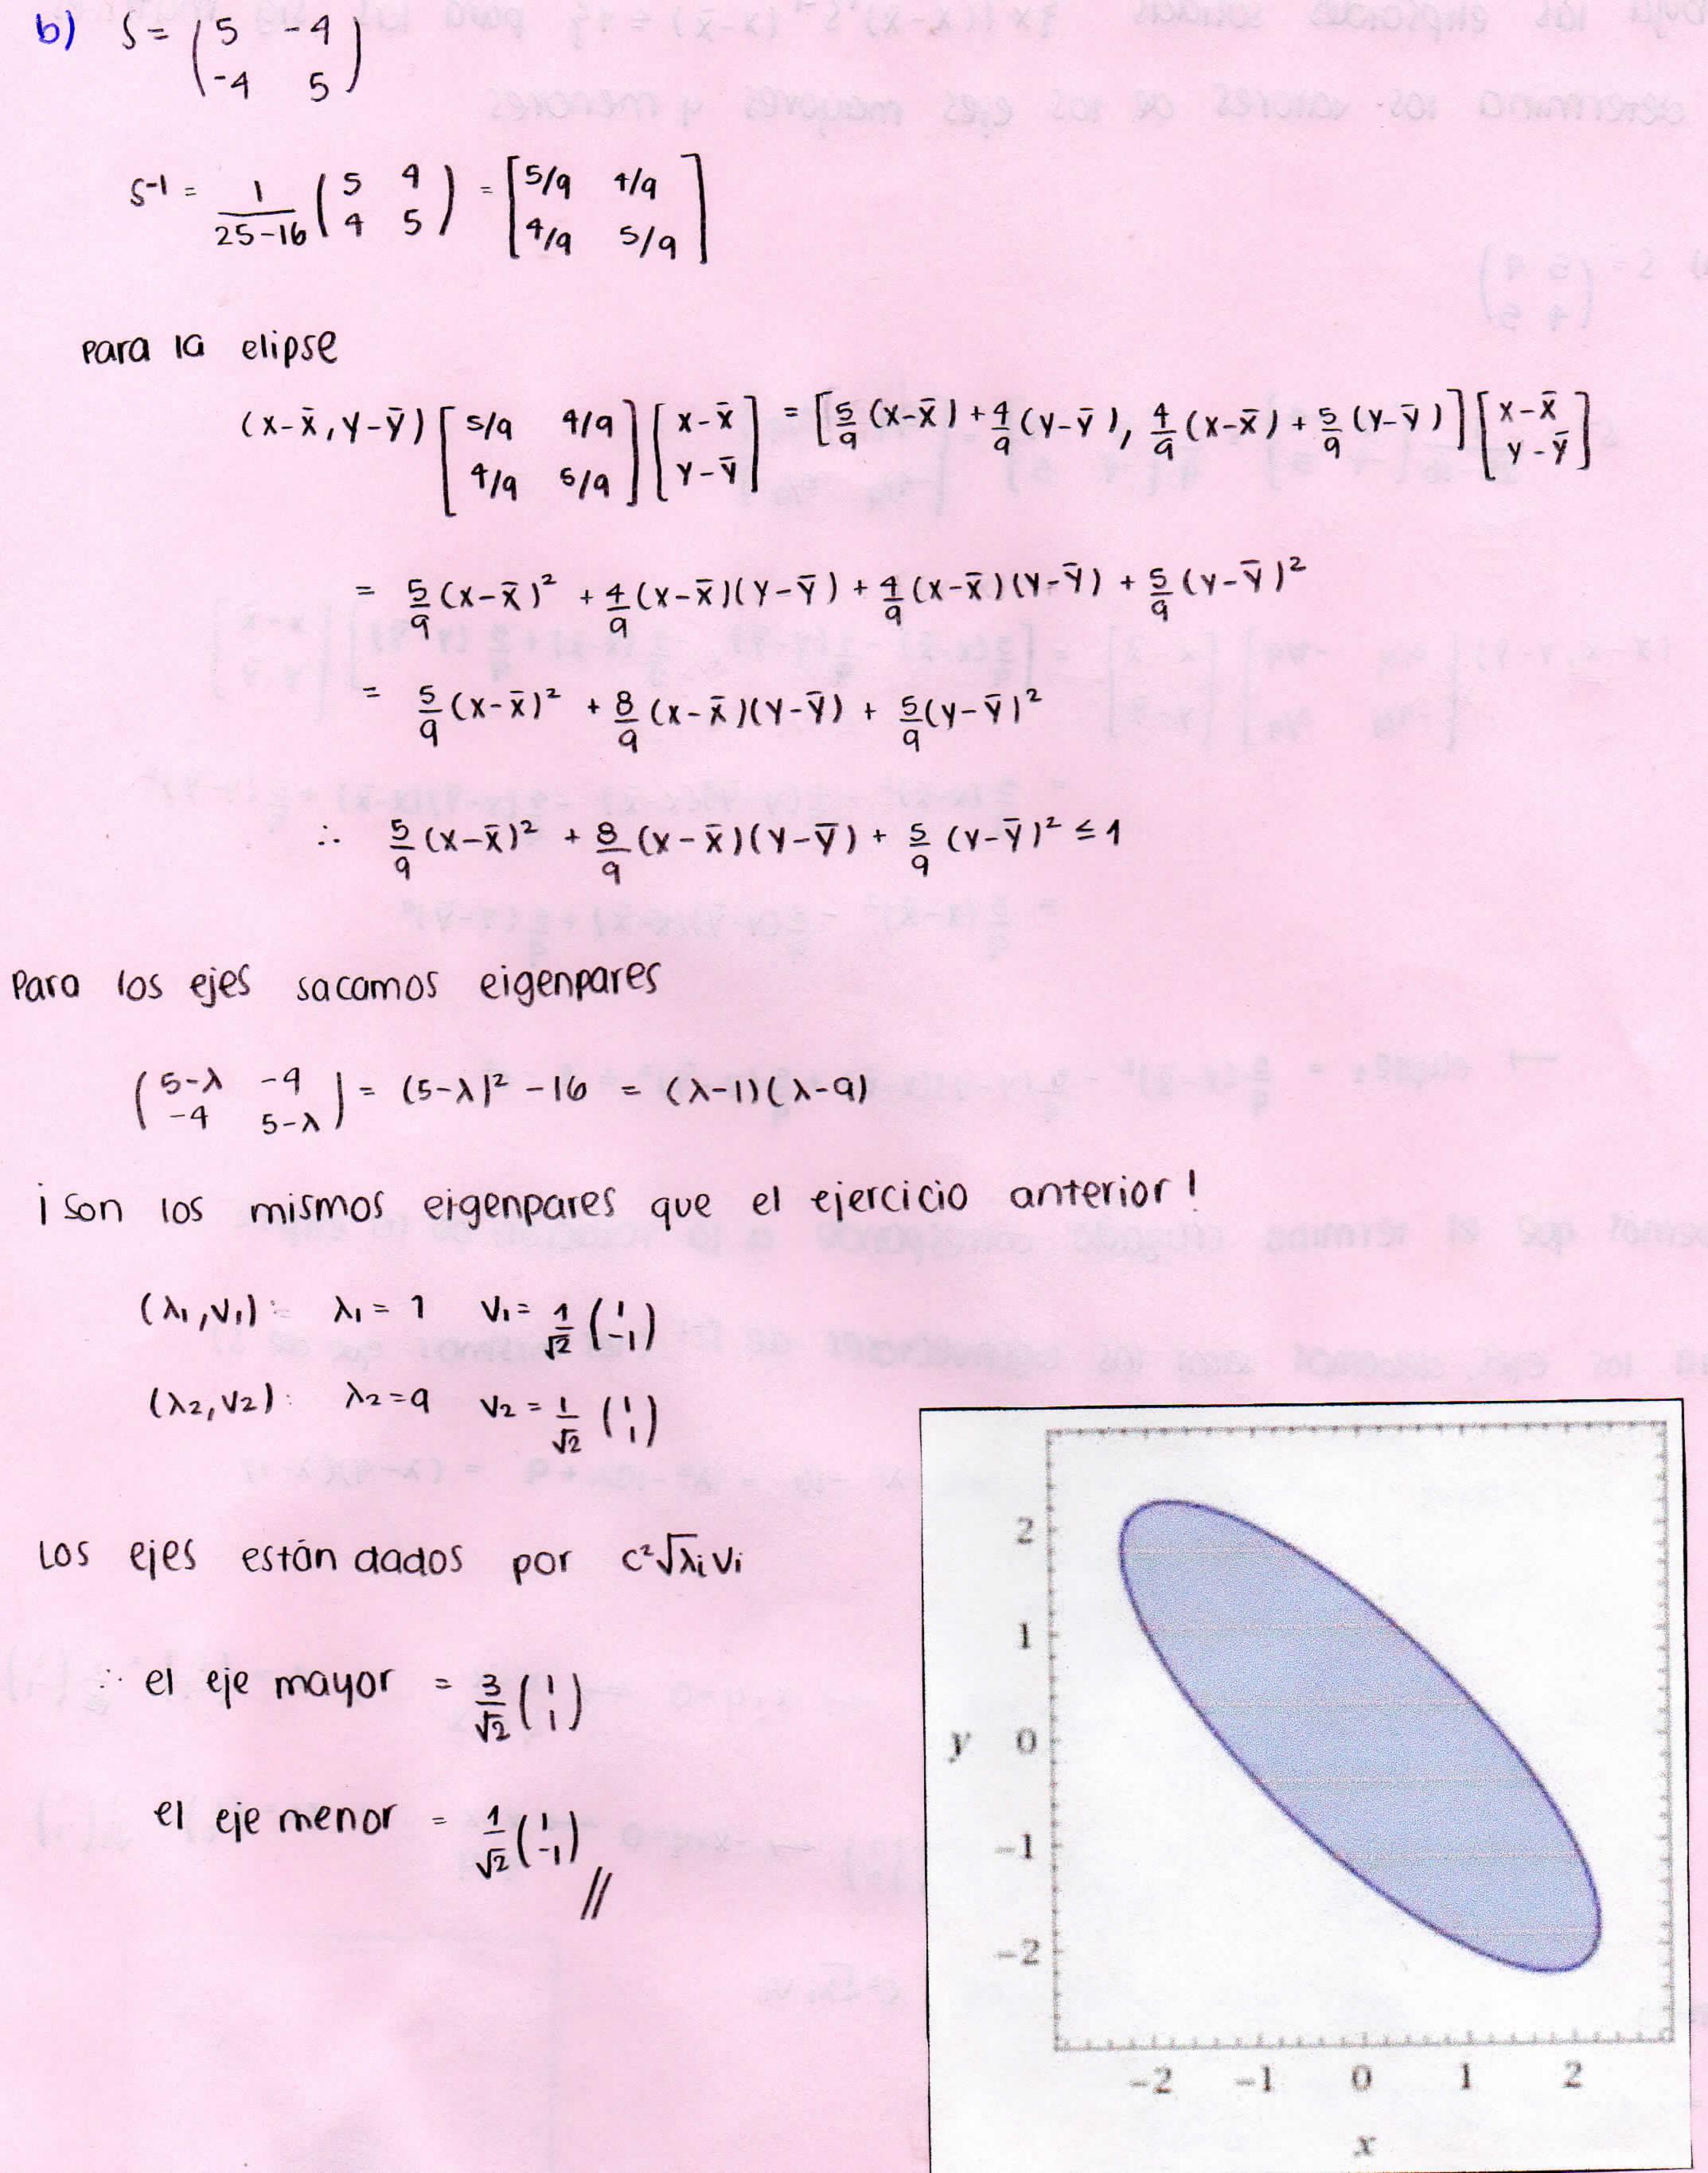 b) S = ( 5 -4 )
( -4 5 )
S⁻¹ = 1/(25-16) ( 5 4 ; 4 5 ) = [ 5/9 4/9 ; 4/9 5/9 ]
para la elipse
(x-x̄, y-ȳ) [ 5/9 4/9 ; 4/9 5/9 ] [ x-x̄ ; y-ȳ ] = [ 5/9 (x-x̄) + 4/9 (y-ȳ), 4/9 (x-x̄) + 5/9 (y-ȳ) ] [ x-x̄ ; y-ȳ ]
= 5/9 (x-x̄)² + 4/9 (x-x̄)(y-ȳ) + 4/9 (x-x̄)(y-ȳ) + 5/9 (y-ȳ)²
= 5/9 (x-x̄)² + 8/9 (x-x̄)(y-ȳ) + 5/9 (y-ȳ)²
∴ 5/9 (x-x̄)² + 8/9 (x-x̄)(y-ȳ) + 5/9 (y-ȳ)² ≤ 1
Para los ejes sacamos eigenpares
( 5-λ -4 ; -4 5-λ ) = (5-λ)² - 16 = (λ-1)(λ-9)
¡Son los mismos eigenpares que el ejercicio anterior!
(λ₁, v₁): λ₁ = 1 v₁ = 1/√2 ( 1 ; -1 )
(λ₂, v₂): λ₂ = 9 v₂ = 1/√2 ( 1 ; 1 )
Los ejes están dados por c²√λᵢ vᵢ
∴ el eje mayor = 3/√2 ( 1 ; 1 )
el eje menor = 1/√2 ( 1 ; -1 ) //
2
1
y 0
-1
-2
-2 -1 0 1 2
x